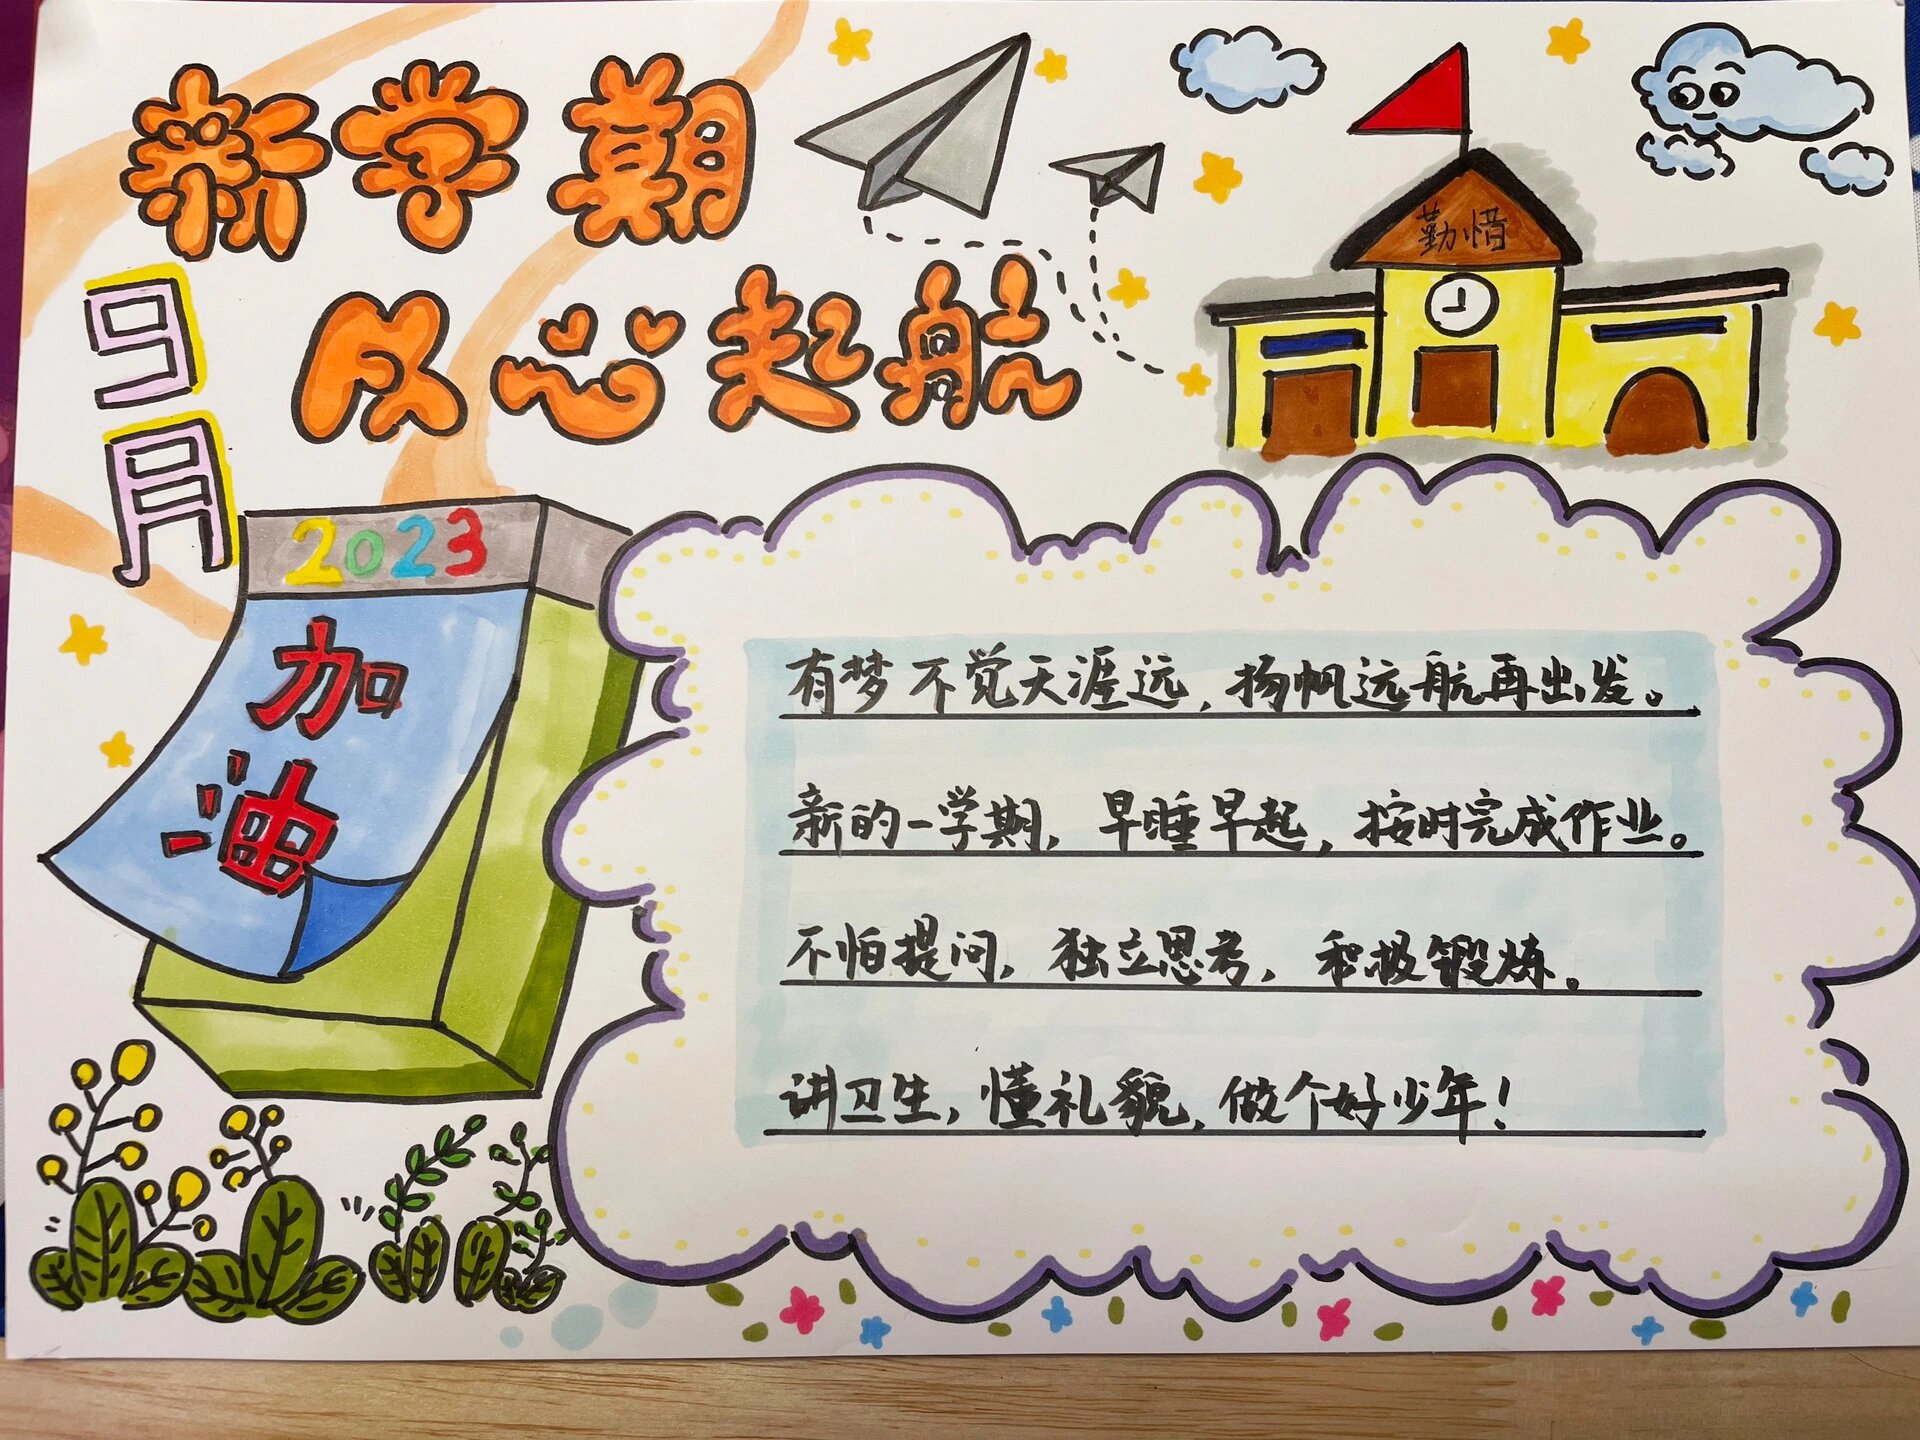 新学期
从心起航
9月
勤惜
2023
加油
有梦不觉天涯远,扬帆远航再出发。
新的一学期,早睡早起,按时完成作业。
不怕提问,独立思考,积极锻炼。
讲卫生,懂礼貌,做个好少年!